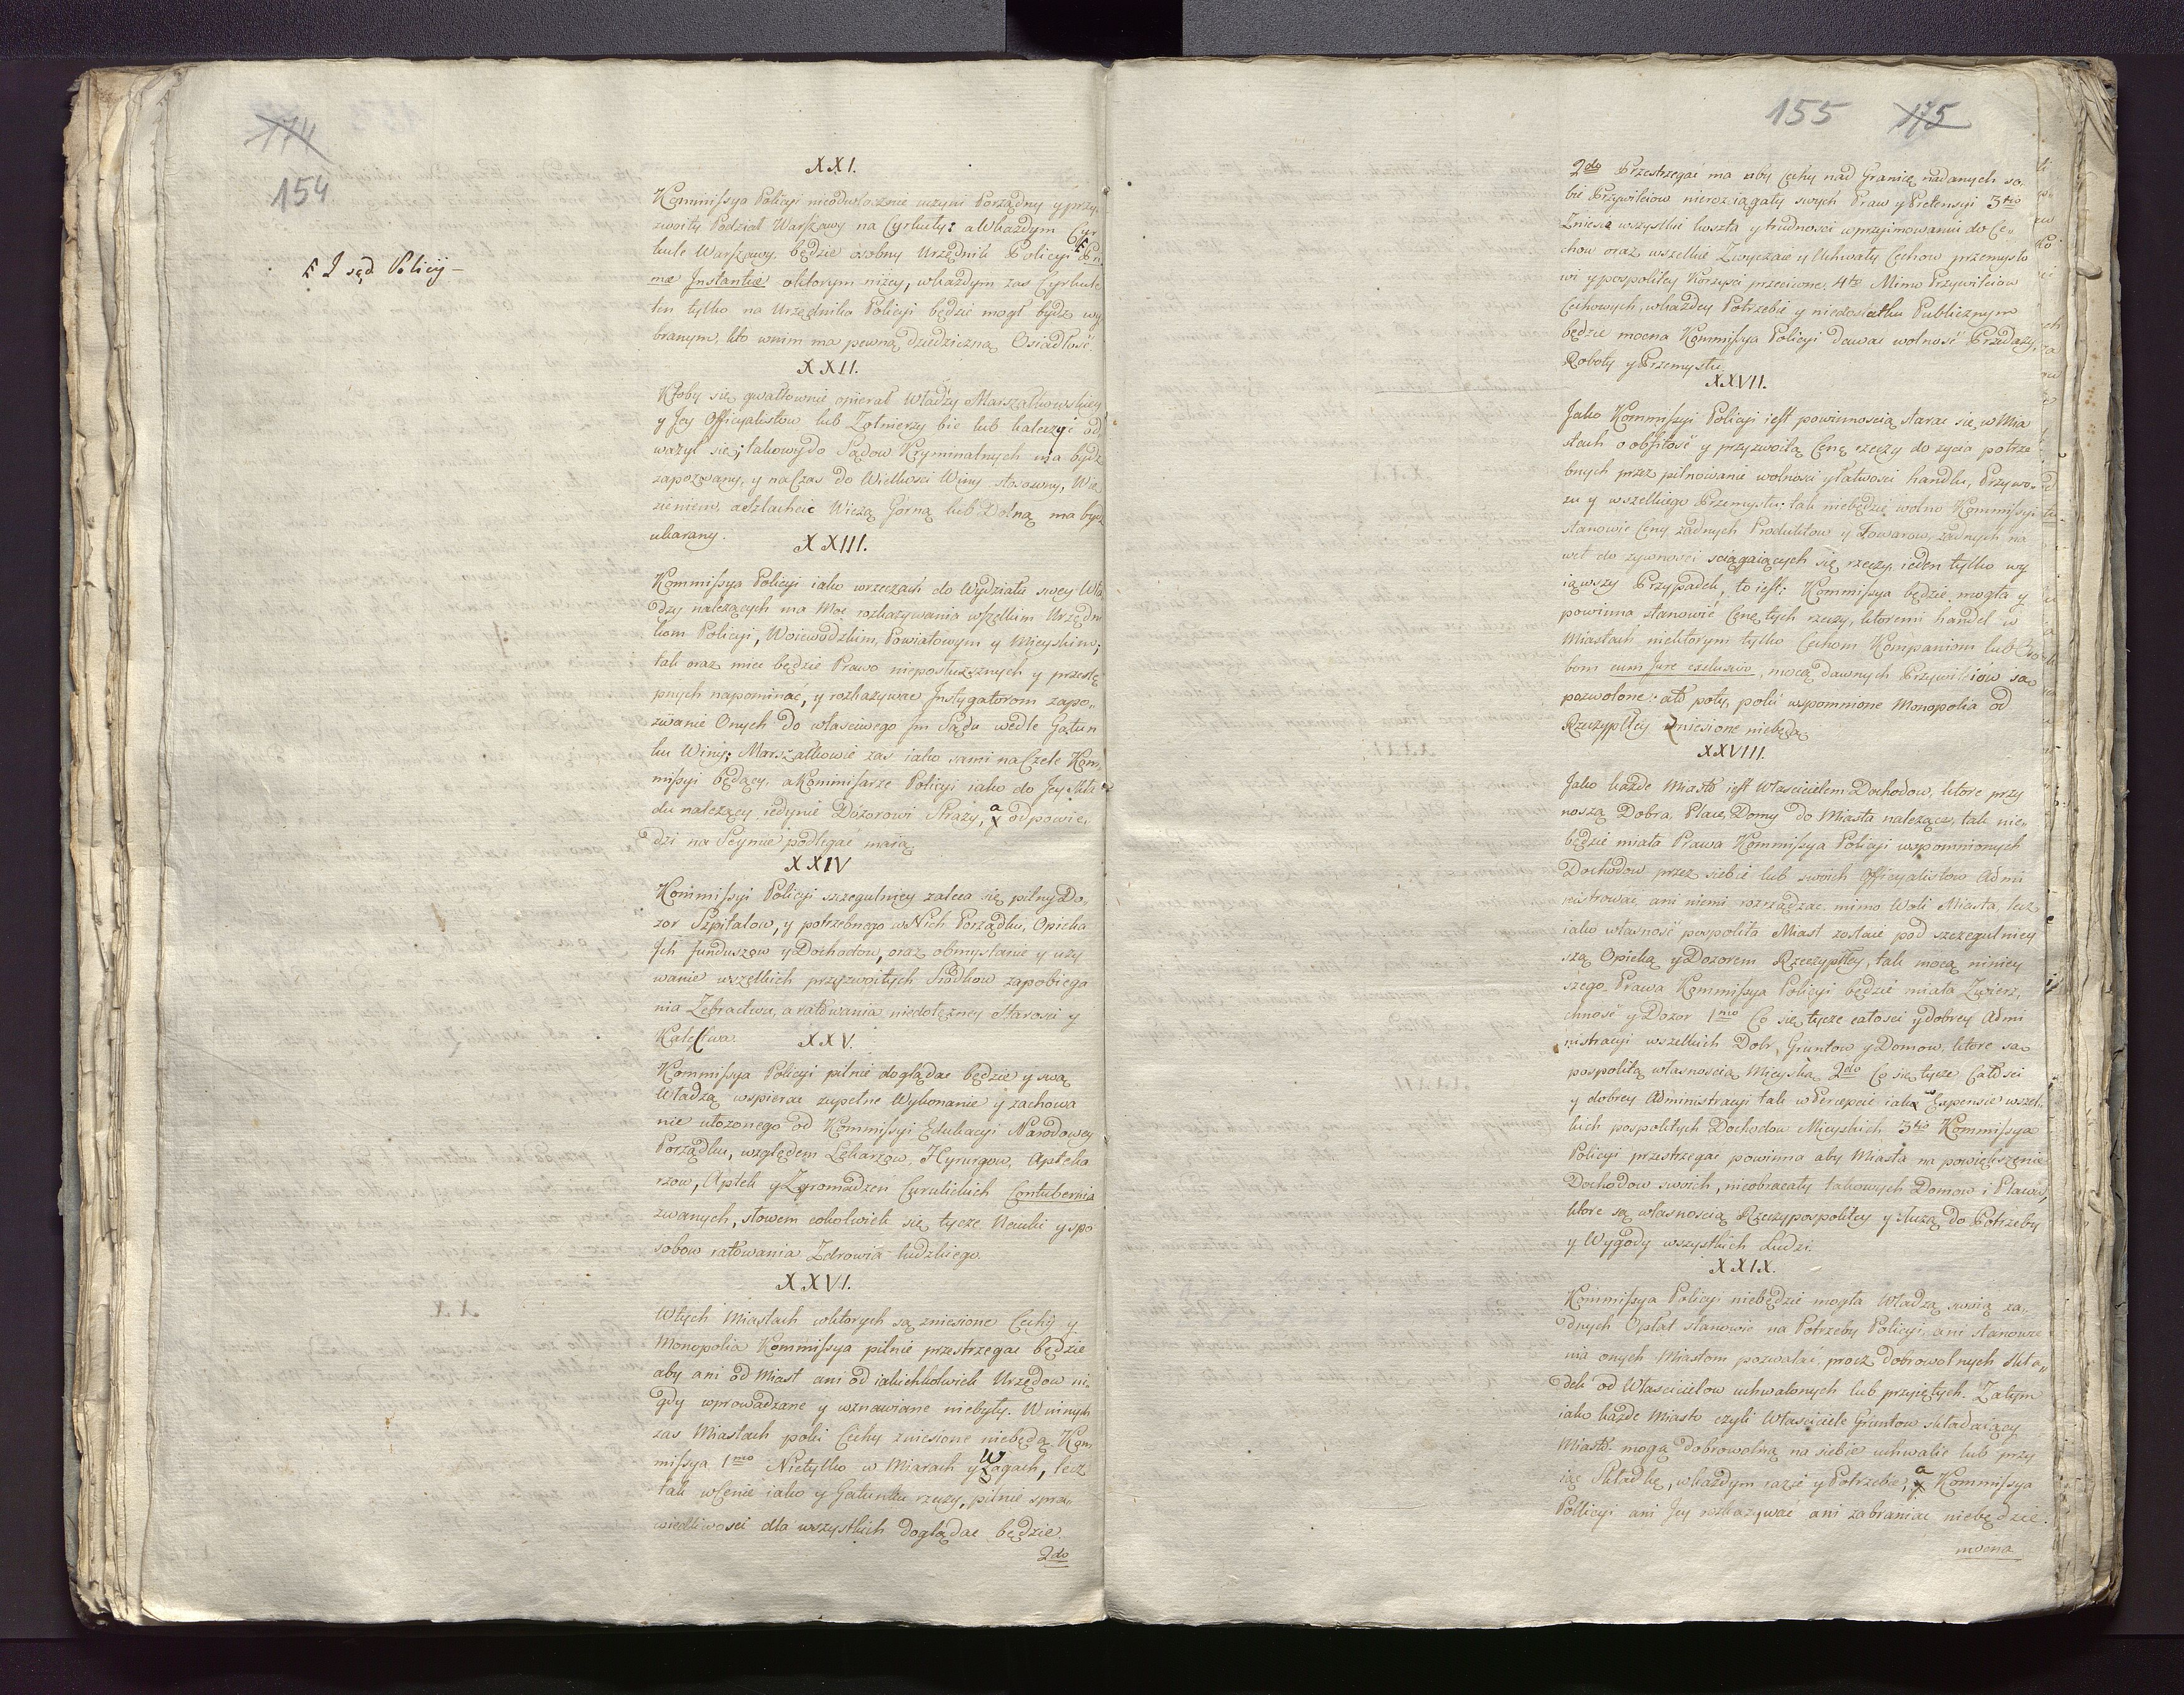 174
154
ꝶ I sąd Policij —
XXI.
Kommissya Policyi nieodwłocznie uczyni Porządny y przy-
zwoity Podział Warszawy na Cyrkuły: a w każdym Cyr
kule Warszawy, będzie osobny Urzędnik Policyi Pri
mæ Instantiæ o ktorym niżey, w każdym zas Cyrkule
ten tylko na Urzędnika Policyi będzie mogł bydz wy
branym, kto w nim ma pewną dziedziczną Osiadłość
XXII.
Ktoby się gwałtownie opierał Władzy Marszałkowskiey
y Jey Officyalistow lub Zołnierzy bic lub kaleczyć od
ważył się; takowy do Sądow Kryminalnych ma bydz
zapozwany, y na Czas do Wielkosci Winy stosowny, Wię
zieniem, a Szlachcic Wieżą Gorną lub Dolną ma bydz
ukarany.
XXIII.
Kommissya Policyi iako w rzeczach do Wydziału swey Wła
dzy należących ma Moc rozkazywania wszelkim Urzędni
kom Policyi, Woiewodzkim, Powiatowym y Mieyskim;
tak oraz miec będzie Prawo nieposłusznych y przestę
pnych napominać, y rozkazywac Instygatorom zapo-
zwanie Onych do własciwego Jm Sądu wedle Gatun
ku Winy; Marszałkowie zas iako sami na Czele Kom-
missyi będący, a Kommissarze Policyi iako do Jey Skła
du należący iedynie Dozorowi Straży, a odpowie-
dzi na Seymie podlegać maią
XXIV
Kommissyi Policyi szzegulniey zaleca się pilny Do
zor Szpitalow, y potrzebnego w Nich Porządku, Opieka
Jch funduszow y Dochodow, oraz obmyslanie y uży
wanie wszelkich przyzwoitych Srodkow zapobiega
nia Żebractwu, a ratowania niedołężney Starosci y
Kalectwa.
XXV.
Kommissya Policyi pilnie doglądac będzie y swą
Władzą wspierac zupełne Wykonanie y zachowa
nie ułożonego od Kommissyi Edukacyi Narodowey
Porządku, względem Lekarzow, Hyrurgow, Apteka
rzow, Aptek y Zgromadzen Cyrulickich Contubernia
zwanych, słowem cokolwiek się tycze Nauki y spo
sobow ratowania Zdrowia ludzkiego.
XXVI.
W tych Miastach w ktorych są zniesione Cechy y
Monopolia Kommissya pilnie przestrzegac będzie
aby ani od Miast ani od iakichkolwiek Urzędow ni-
gdy wprowadzane y wznawiane niebyły. W innych
zas Miastach poki Cechy zniesione niebędą, Kom-
missya 1mo Nietylko w Miarach y Wagach, lecz
tak w Cenie iako y Gatunku rzeczy, pilnie spra-
wiedliwosci dla wszystkich doglądac będzie.
2do
155 175
2do Przestrzegać ma aby Cechy nad Granicę nadanych so-
bie Przywileiow nierozciągały swych Praw y Pretensyi 3tio
Zniesie wszystkie koszta y trudnosci w przyimowaniu do Ce-
chow oraz wszelkie Zwyczaie y Uchwały Cechow przemysło
wi y pospolitey Korzysci przeciwne. 4to Mimo Przywileiow
Cechowych, w każdey Potrzebie y niedostatku Publicznym
będzie mocna Kommissya Policyi dawac wolność Przedaży,
Roboty y Przemysłu.
XXVII.
Jako Kommissyi Policyi iest powinnoscią starac się w Mia
stach o obfitość y przyzwoitą Cenę rzeczy do życia potrze
bnych przez pilnowanie wolnosci y łatwosci handlu, Przywo-
zu y wszelkiego Przemysłu; tak niebędzie wolno Kommissyi
stanowic Ceny żadnych Produktow y Towarow, żadnych na
wet do żywnosci sciągaiących się rzeczy; ieden tylko wy
iąwszy Przypadek, to iest: Kommissya będzie mogła y
powinna stanowić Cenę tych rzeczy, ktoremi handel w
Miastach niektorym tylko Cechom Kompaniom lub Oso
bom cum Jure exclusivo, mocą dawnych Przywileiow są
pozwolone: a to poty, poki wspomnione Monopolia od
Rzeczypltey zniesione niebędą.
XXVIII.
Jako każde Miasto iest Włascicielem Dochodow, ktore przy
noszą Dobra, Place, Domy do Miasta należące, tak nie-
będzie miała Prawa Kommissya Policyi wspomnionych
Dochodow przez siebie lub swoich Officyalistow Admi
nistrowac, ani niemi rozrządzac, mimo Woli Miasta, lecz
iako własność pospolita Miast zostaie pod szczegulniey
szą Opieką y Dozorem Rzeczypltey, tak mocą niniey
szego Prawa Kommissya Policyi będzie miała Zwierz-
chność y Dozor 1mo Co się tycze całosci y dobrey Admi
nistracyi wszelkich Dobr, Gruntow y Domow, ktore są
pospolitą własnoscią Mieyską 2do Co się tycze Całosci
y dobrey Administracyi tak w Percepcie iako w Expensie wszel-
kich pospolitych Dochodow Mieyskich 3tio Kommissya
Policyi przestrzegac powinna aby Miasta na powiększenie
Dochodow swoich, nieobracały takowych Domow i Placow,
ktore są własnoscią Rzeczypospolitey y służą do Potrzeby
y Wygody wszystkich Ludzi.
XXIX.
Kommissya Policyi niebędzie mogła Władzą swoią ża-
dnych Opłat stanowic na Potrzeby Policyi, ani stanowie
nia onych Miastom pozwalać, procz dobrowolnych Skła-
dek od Włascicielow uchwalonych lub przyiętych. Zatym
iako każde Miasto czyli Wlasciciele Gruntow składaiący
Miasto mogą dobrowolną na siebie uchwalic lub przy
iąc Składkę, w każdym razie y Potrzebie, a Kommissya
Pollicyi ani Jey rozkazywać ani zabraniac niebędzie
mocna